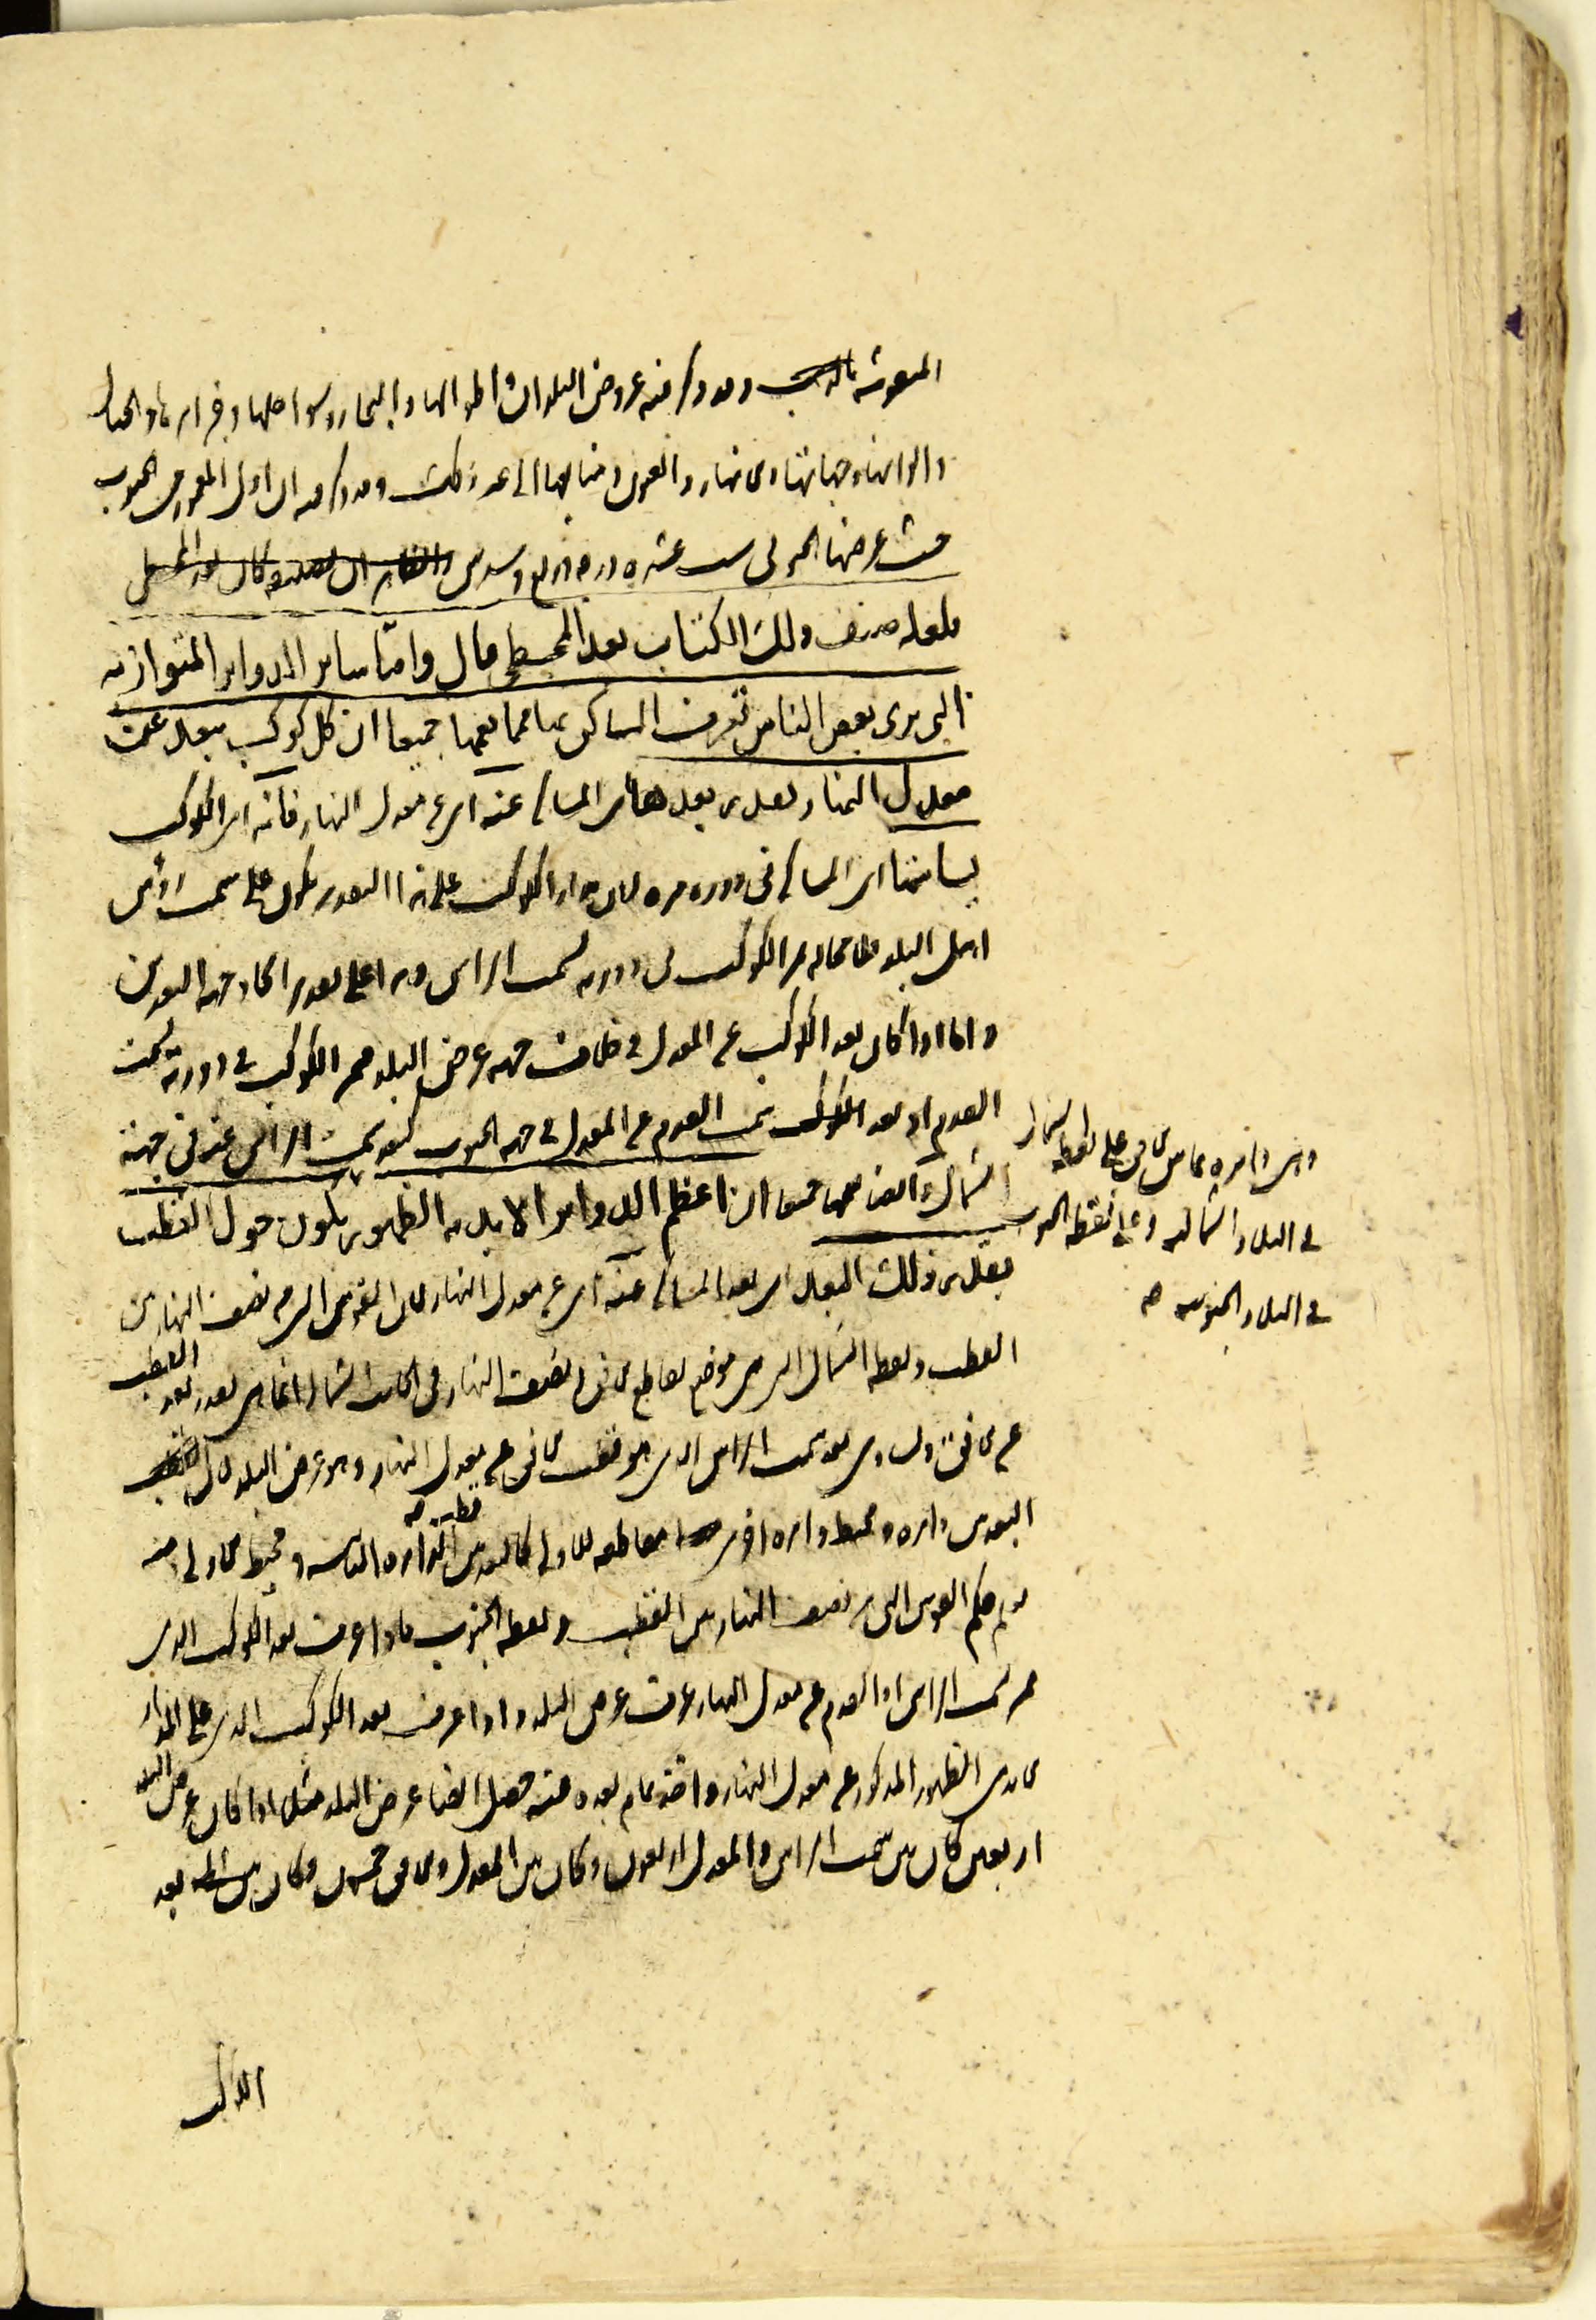 وقد ذكر فيه عروض البلدان واطوالها والبحار وسواحلها وجزايرها والجبال
والوانها وجهاتها والانهار والعيون ومنابعها الى غير ذلك وقد ذكر فيه ان اول المعمور من الجنوب
حيث عرضها الجنوبي ست عشرة درجة وربع وسدس
فلعله صنف ذلك الكتاب بعد المجسطي قال وامّا ساير الدواير المتوازيه
التي يرى بعض الناس تعرف المساكن بها فمما يعمها جميعا ان كل كوكب يبعد عن
معدل النهار بقدر بعد المساكن عنه اى عن معدل النهار فانه اى الكوكب
يسامتها اى المساكن فى دوره مره لان مدار الكوكب على هذا البعد يكون على سمت راس
اهل البلد فلا محاله يمر الكوكب فى دورته بسمت الراس وهذا على تقدير اتحاد جهة البعدين
واما اذا كان بعد الكوكب عن المعدل فى خلاف جهه عرض البلد فيمر الكوكب فى دورته بسمت
القدم اذ بعد سمت القدم عن المعدل فى جهه الجنوب كبعد سمت الراس عنه فى جهة
الشمال وايضا يعمها جميعا ان اعظم الدواير الابديه الظهور يكون حول القطب
بقدر ذلك البعد اى بعد المساكن عنه اى عن معدل النهار لان القوس التي من نصف النهار بين
القطب ونقطه الشمال التي هي موضع تقاطع الافق ونصف النهار فى الجانب الشمالى انما هى بقدر بعد القطب
عن الافق وتساوى بعد سمت الراس الذى هو قطب الافق عن معدل النهار وهو عرض البلد لان
البعد بين دايره ومحيط دايره اخرى مقاطعه للاولى كالبعد بين قطب الدايره الثانيه ومحيط الاولى
حكم القوس التى من نصف النهار بين القطب ونقطه الجنوب فاذا عرف بعد الكوكب الذى
يمر بسمت الراس او القدم عن معدل النهار عرف عرض البلد واذا عرف بعد الكوكب الذى على المدار
الابدى الظهور المذكور عن معدل النهار واخذ تمام بعده عنه حصل ايضا عرض البلد مثلا اذا كان عرض البلد
اربعين كان بين سمت الراس والمعدل اربعون وكان بين المعدل والافق خمسون وكان بين بعد
وهى دايره تماس الافق على نقطه الشمال
فى البلاد الشماليه وعلى نقطه الجنوب
فى البلاد الجنوبيه صح
الكواكب